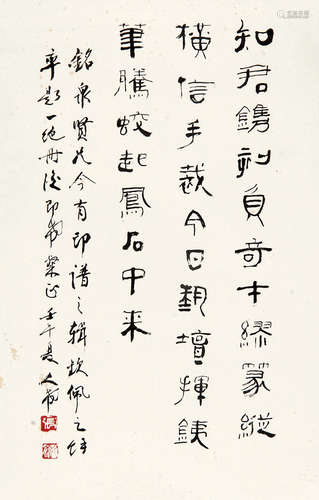 知君鐫刻負奇才繆篆縱
橫信手裁今日藝壇揮銕
筆騰蛟起鳳石中来
銘泉贤兄今有印譜之辑欽佩之馀
率题一绝册後即希粲正壬午夏